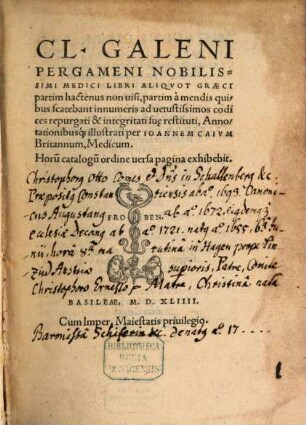 CL. GALENI
PERGAMENI NOBILIS-
SIMI MEDICI LIBRI ALIQVOT GRÆCI
partim hactenus non uisi, partim à mendis quibus
scatebant innumeris ad uetustissimos codices
repurgati & integritati suę restituti, Annotationibusq́;
illustrati per IOANNEM CAIVM
Britannum, Medicum.
Horū catalogū ordine uersa pagina exhibebit.
Christophorg Otto Comes & Dns in Schallenberg &c
Præpositg Constantiensis ab aº. 1693. Canonicus
Augustang ab aº. 1672. Eiusdemq;
FRO BEN.
ecclesiæ Decang ab aº 1721. natg aº. 1655.
hora 8ª matutina in Hagen prope
Austria Superioris, Patre, Comite
Christophoro Ernesto & Matre, Christina nata
BASILEAE, M. D. XLIIII.
Cum Imper. Maiestatis priuilegio.
Baronissa &c. denatg aº. 17
BIBLIOTHECA
REGIA
MONACENSIS